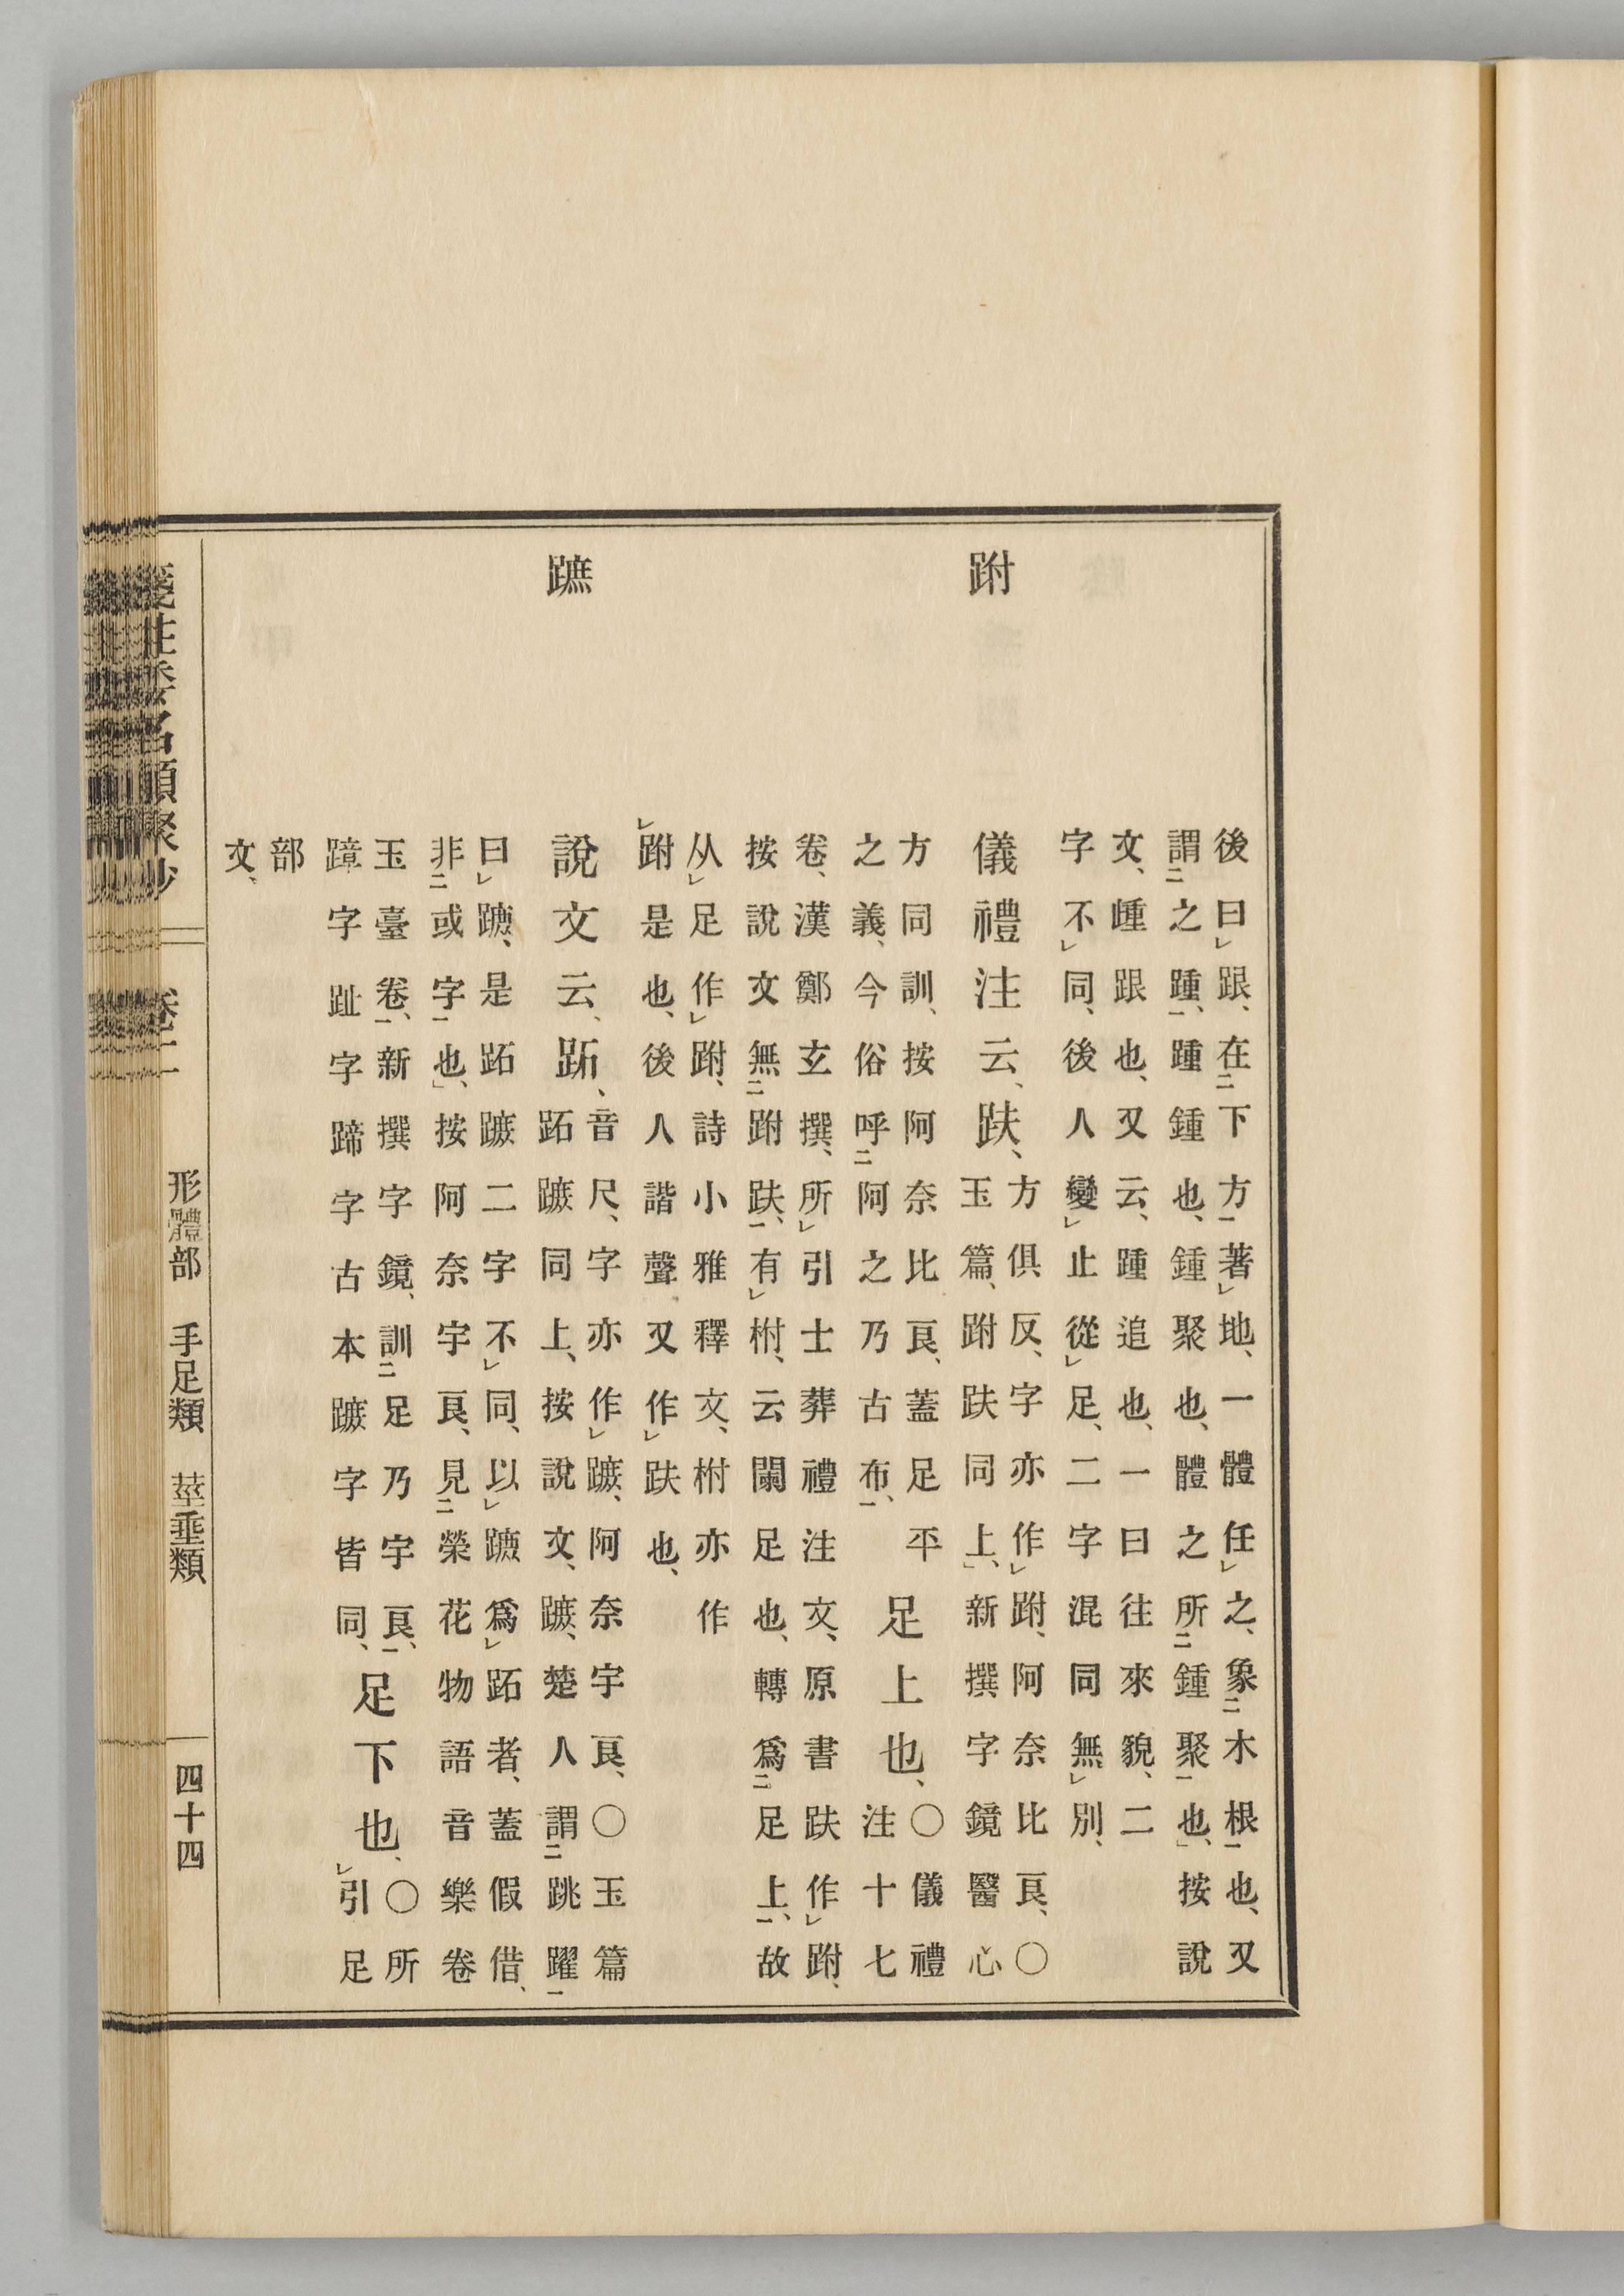 後曰跟、在下方著地、一體任之、象木根也、又
謂之踵、踵鍾也、鍾聚也、體之所鍾聚也、按說
文、歱跟也、又云、踵追也、一曰往來貌、二
字不同、後人變止從足、二字混同無別、
跗
儀禮注云、趺、
方俱反、字亦作跗、阿奈比良、〇
玉篇、跗趺同上、新撰字鏡醫心
方同訓、按阿奈比良、蓋足平
之義、今俗呼阿之乃古布、
足上也、
〇儀禮
注十七
卷、漢鄭玄撰、所引士葬禮注文、原書趺作跗、
按說文無跗趺、有柎、云闌足也、轉爲足上、故
从足作跗、詩小雅釋文、柎亦作
跗是也、後人諧聲又作趺也、
蹠
說文云、跖、
音尺、字亦作蹠、阿奈宇良、〇玉篇
跖蹠同上、按說文、蹠、楚人謂跳躍
曰蹠、是跖蹠二字不同、以蹠爲跖者、蓋假借、
非或字也、按阿奈宇良、見榮花物語音樂卷
玉臺卷、新撰字鏡、訓足乃宇良、
蹱字趾字蹄字古本蹠字皆同、
足下也、
〇所
引足
部
文、
箋注倭名類聚抄
卷二
形體部 手足類 莖垂類
四十四